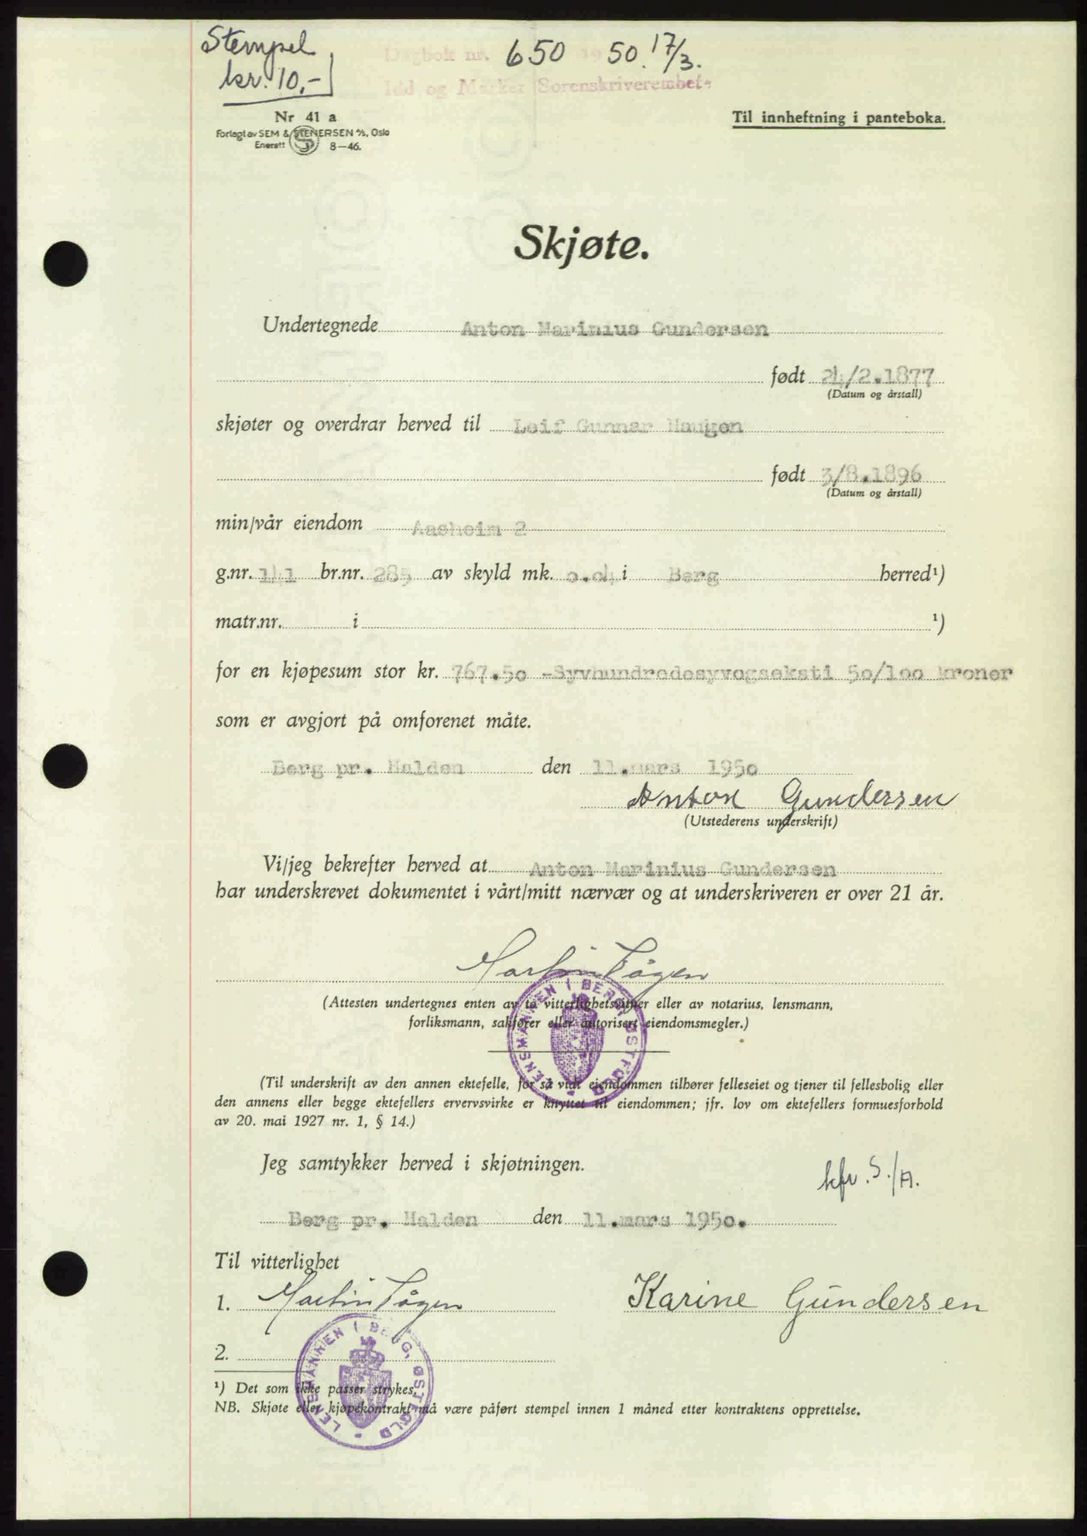 Stempel
kr. 10,-
Dagbok nr. 650 1950. 17/3.
Idd og Marker Sorenskriverembete
Nr 41 a
Forlagt av SEM & STENERSEN A/S, Oslo
Enerett 8-46.
Til innheftning i panteboka.
Skjøte.
Undertegnede Anton Marinius Gundersen
født 24/2.1877
(Datum og årstall)
skjøter og overdrar herved til Leif Gunnar Haugen
født 3/8.1896
(Datum og årstall)
min/vår eiendom Aasheim 2
g.nr. 141 br.nr. 285 av skyld mk. 0.04 i Berg herred¹)
matr.nr. i ¹)
for en kjøpesum stor kr. 767.50 -Syvhundredesyvogseksti 50/100 kroner
som er avgjort på omforenet måte.
Berg pr. Halden den 11.mars 1950
Anton Gundersen
(Utstederens underskrift)
Vi/jeg bekrefter herved at Anton Marinius Gundersen
har underskrevet dokumentet i vårt/mitt nærvær og at underskriveren er over 21 år.
Martin Tågen
(Attesten undertegnes enten av to vitterlighetsvitner eller av notarius, lensmann,
forliksmann, sakfører eller autorisert eiendomsmegler.)
LENSMANNEN I BERG, ØSTFOLD
(Til underskrift av den annen ektefelle, for så vidt eiendommen tilhører felleseiet og tjener til fellesbolig eller
den annens eller begge ektefellers ervervsvirke er knyttet til eiendommen; jfr. lov om ektefellers formuesforhold
av 20. mai 1927 nr. 1, § 14.)
Jeg samtykker herved i skjøtningen.
kfr. S./A.
Berg pr. Halden den 11.mars 1950.
Til vitterlighet
1. Martin Tågen
Karine Gundersen
2.
LENSMANNEN I BERG, ØSTFOLD
¹) Det som ikke passer strykes.
NB. Skjøte eller kjøpekontrakt må være påført stempel innen 1 måned etter kontraktens opprettelse.